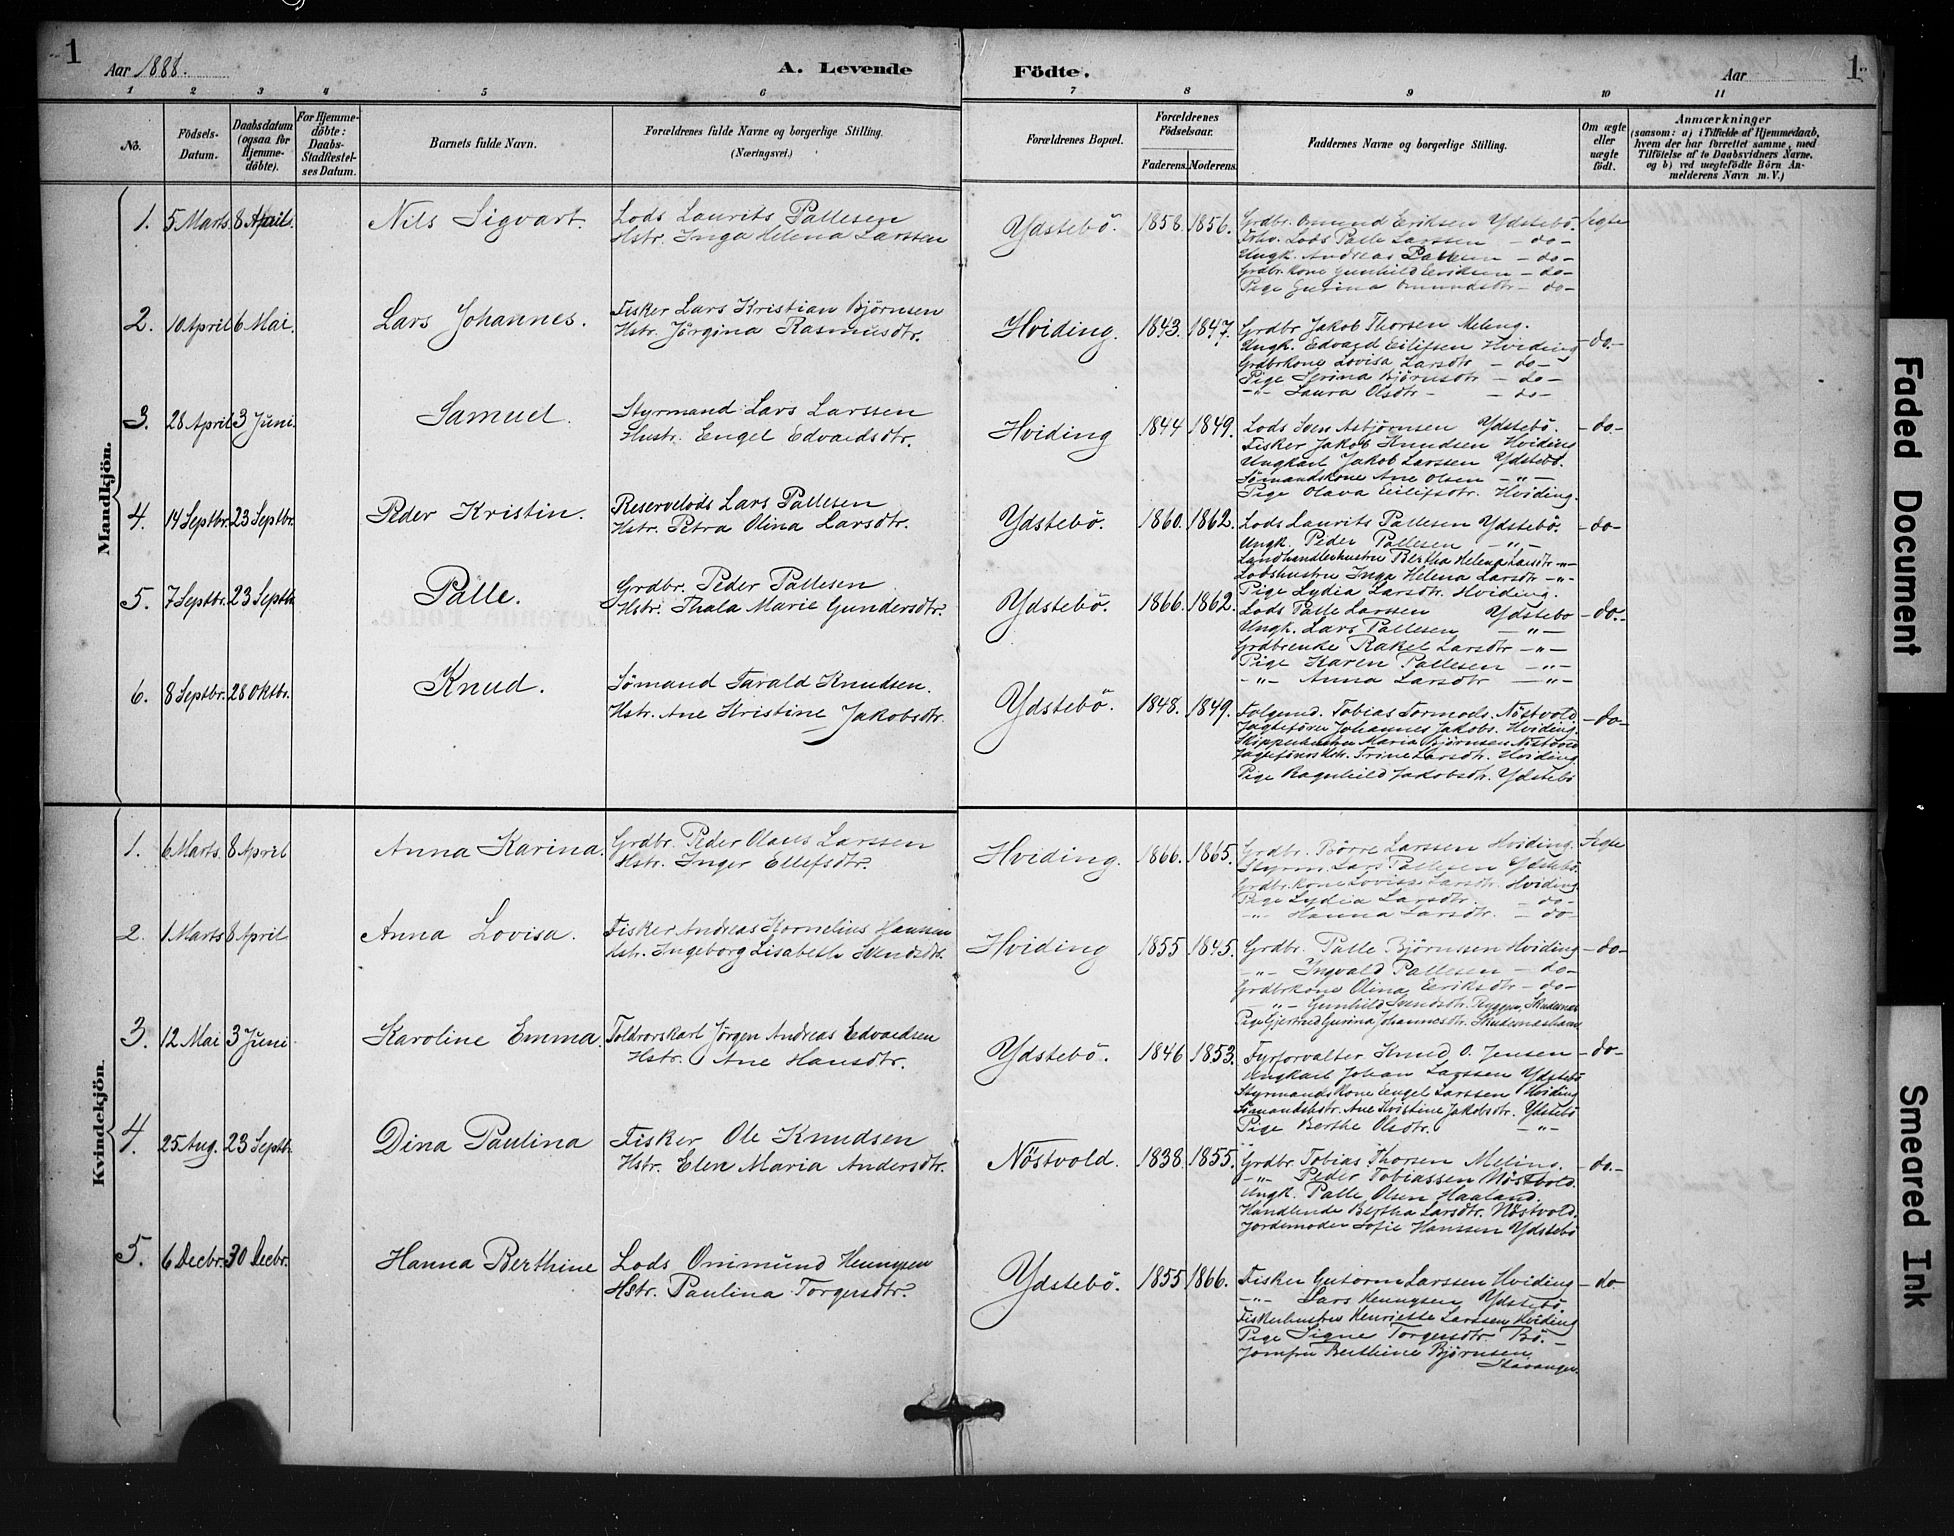 1
Aar 1888.
A. Levende
Födte.
Aar
1
1 2 3 4 5 6 7 8 9 10 11
No.
Födsels-Datum.
Daabsdatum (ogsaa for Hjemme-döbte).
For Hjemme-döbte: Daabs-Stadfæstel-ses Datum.
Barnets fulde Navn.
Forældrenes fulde Navne og borgerlige Stilling. (Næringsvei.)
Forældrenes Bopæl.
Forældrenes Födselsaar.
Faderens. Moderens.
Faddernes Navne og borgerlige Stilling.
Om ægte eller uægte födt.
Anmærkninger
(saasom: a) i Tilfælde af Hjemmedaab, hvem der har forrettet samme, med Tilföielse af to Daabsvidners Navne, og b) ved uægtefödte Börn An-melderens Navn m. V.)
Mandkjön.
1. 5 Marts. 8 April. Nils Sigvart. Lods Laurits Pallesen
Hstr. Inga Helena Larssen
Ydstebö. 1858. 1856. Grdbr. Omund Eriksen Ydstebö. Ægte
Lods Palle Larssen - do -
Ungk. Andreas Pallesen - do -
Grdbr.kone Gunhild Eeriksen - do -
Pige Gurina Omundsdtr - do -
2. 10 April 6 Mai. Lars Johannes. Fisker Lars Kristian Bjørnsen
Hstr. Jörgina Rasmusdtr.
Hviding. 1843. 1847. Grdbr Jakob Thorsen Meling. - do. -
Ungk. Edvard Eilifsen Hviding
Grdbrkone Lovisa Larsdtr - do -
Pige Serina Bjørnsdtr - do -
- " - Laura Olsdtr - - do -
3. 28 April 3 Juni. Samuel. Styrmand Lars Larssen
Hustr. Engel Edvardsdtr.
Hviding 1844 1849. Lods Sven Asbjørnsen Ydstebö. - do. -
Fisker Jakob Knudsen Hviding
Ungkarl Jakob Larssen Ydstebö.
Sømandskone Ane Olsen - " -
Pige Olava Eilifsdtr. Hviding.
4. 14 Septbr. 23 Septbr. Peder Kristin. Reservelods Lars Pallesen
Hstr. Petra Olina Larsdtr.
Ydstebö. 1860. 1862. Lods Laurits Pallesen Ydstebö. - do -
Ungk. Peder Pallesen - " -
Landhandlerhustru Bertha Helena Larsdtr - " -
Lodshustru Inga Helena Larsdtr - " -
Pige Lydia Larsdtr. Hviding.
5. 7 Septbr. 23 Septbr Palle. Grdbr. Peder Pallesen
Hstr. Thala Marie Gundersdtr.
Ydstebö. 1866. 1862. Lods Palle Larssen Ydstebö - do. -
Ungk. Lars Pallesen - " -
Grdbrenke Rakel Larsdtr - " -
Pige Karen Pallesen - " -
- " - Anna Larsdtr - " -
6. 8 Septbr. 28 Oktbr. Knud. Sømand Tarald Knudsen.
Hstr. Ane Kristine Jakobsdtr.
Ydstebö. 1848. 1849. Tobias Tormods. Nöstvold. - do -
Jagtefører Johannes Jakobs. Hviding.
Skipperhustru Maria Bjørnsen Nöstvold
Jagteførers Hstr. Trine Larsdtr. Hviding.
Pige Ragnhild Jakobsdtr. Ydstebö
Kvindekjön.
1. 6 Marts. 8 April Anna Karina. Grdbr. Peder Olaus Larssen
Hstr. Inger Ellefsdtr.
Hviding. 1866. 1865. Grdbr. Börre Larssen Hviding. Ægte
Styrm. Lars Pallesen Ydstebö.
Grdbr.kone Lovisa Larsdtr. Hviding.
Pige Lydia Larsdtr. - do -
- " - Hanna Larsdtr. - do -
2. 1 Marts 8 April Anna Lovisa. Fisker Andreas Kornelius Hansen
Hstr. Ingeborg Lisabeth Svendsdtr.
Hviding 1855 1845. Grdbr. Palle Bjørnssen Hviding - do -
- " - Ingvald Pallesen - do -
Grdbrkone Olina Eeriksdtr - do -
- " - Gunhild Svendsdtr.
Pige Gjertrud Gurina Johannesdtr. Skudesneshavn
3. 12 Mai 3 Juni Karoline Emma. Toldrorskarl Jörgen Andreas Edvardsen
Hstr. Ane Hansdtr.
Ydstebö. 1846 1853. Fyrforvalter Knud O. Jensen - do -
Ungkarl Johan Larssen Ydstebö
Styrmandskone Engel Larssen Hviding
Sømandshstr. Ane Kristine Jakobsdtr. Ydstebö
Pige Berthe Olsdtr. - " -
4. 25 Aug. 23 Septbr. Dina Paulina Fisker Ole Knudsen
Hstr. Elen Maria Andersdtr.
Nöstvold. 1838. 1855. Grdbr. Tobias Thorsen Meling. - do. -
- " - Peder Tobiassen Nöstvold.
Ungk. Palle Olsen Haaland.
Handlende Bertha Larsdtr. Nöstvold.
Jordemoder Sofie Hanssen Ydstebö
5. 6 Decbr. 30 Decbr. Hanna Berthine Lods Ommund Henrigsen
Hstr. Paulina Torgersdtr.
Ydstebö. 1855 1866. Fisker Gutorm Larssen Hviding - do -
- " - Lars Ydstebö.
Fiskerhustru Henriette Larssen Hviding
Pige Signe Torgersdtr. Bö. -
Jomfru Berthine Bjørnsen
Stavanger.
Faded Document
Smeared Ink